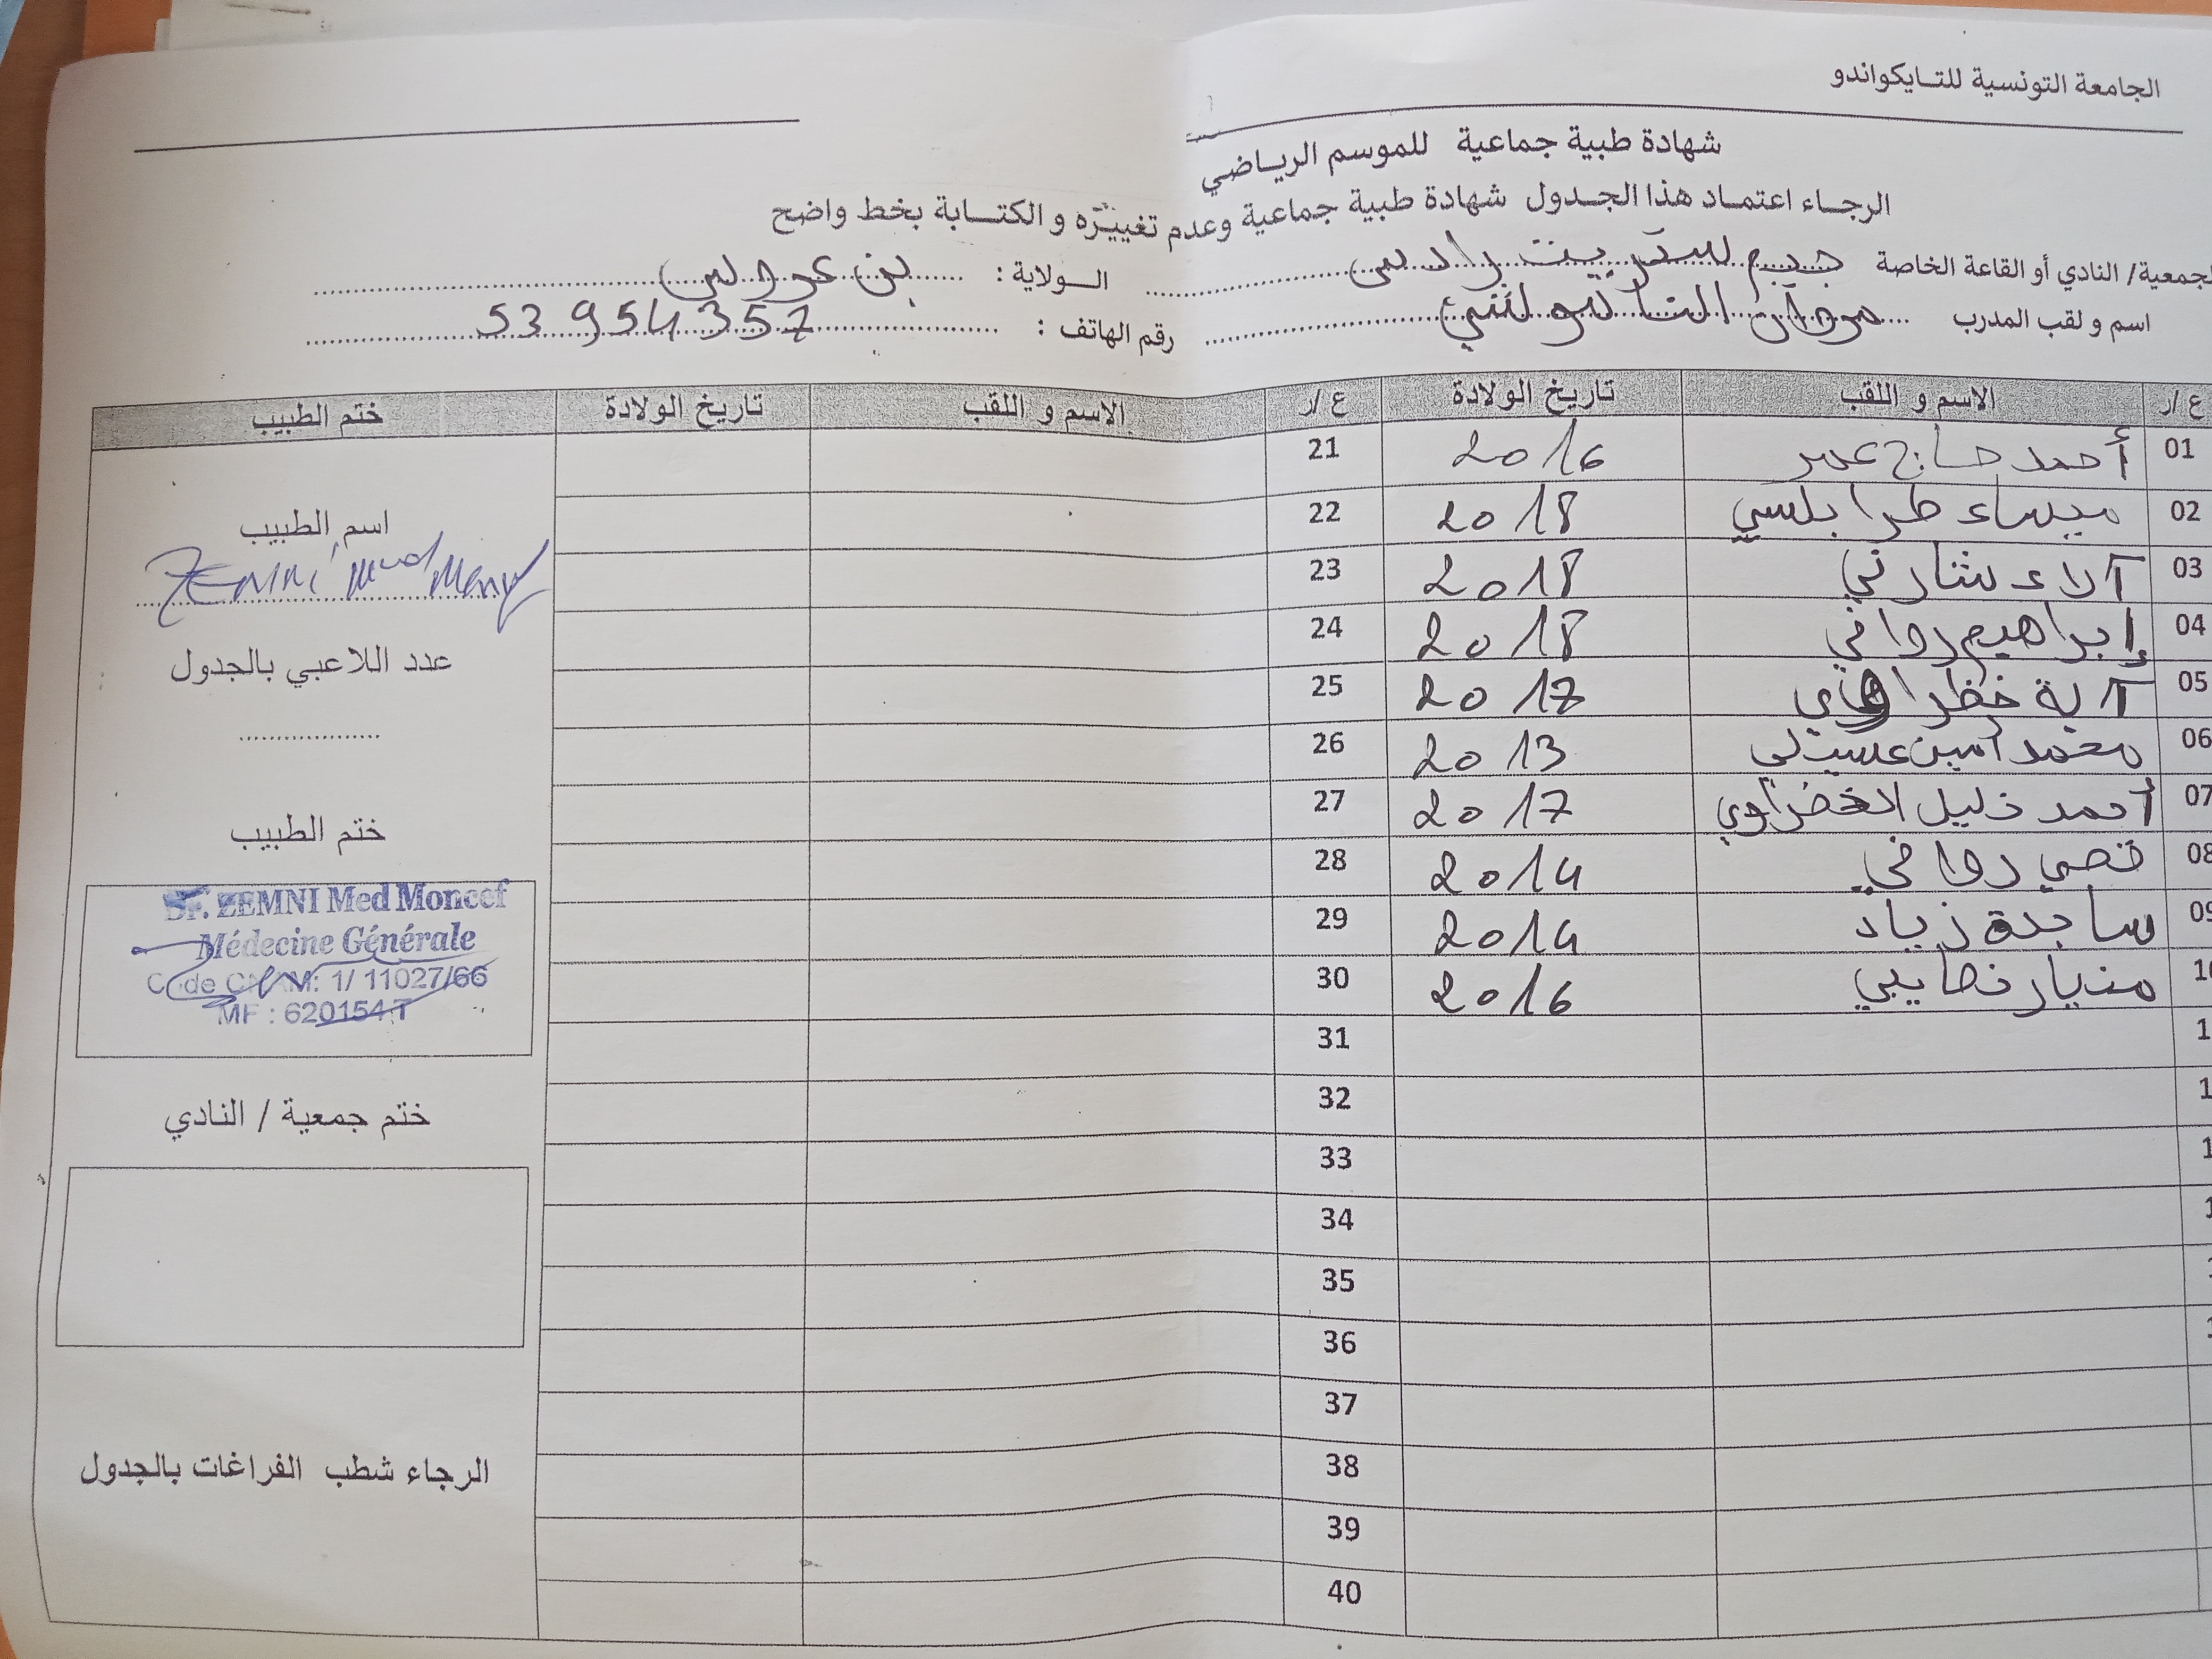 الجامعة التونسية للتايكواندو
شهادة طبية جماعية للموسم الرياضي
الرجاء اعتماد هذا الجدول شهادة طبية جماعية وعدم تغييره و الكتابة بخط واضح
لجمعية/ النادي أو القاعة الخاصة جيم ستريت رادس الولاية : بن عروس
اسم و لقب المدرب مروان رقم الهاتف : 53 954 357
ع /ر الاسم و اللقب تاريخ الولادة ع /ر الاسم و اللقب تاريخ الولادة ختم الطبيب
01 أحمد حاج عمر 2016 21
02 ميساء طرابلسي 2018 22
اسم الطبيب
03 آلاء شارني 2018 23
ZEMNI Med Moncef
04 إبراهيم روافي 2018 24
عدد اللاعبي بالجدول
05 آية خظراوي 2017 25
06 محمد أمين 2013 26
07 أحمد خليل الخضراوي 2017 27
ختم الطبيب
08 قصي روافي 2014 28
Dr. ZEMNI Med Moncef
09 ساجدة زياد 2014 29
Médecine Générale
Code CNAM: 1/ 11027/66
10 منيار نصايبي 2016 30
MF : 620154T
1 31
1 32
ختم جمعية / النادي
1 33
1 34
35
36
37
38
الرجاء شطب الفراغات بالجدول
39
40